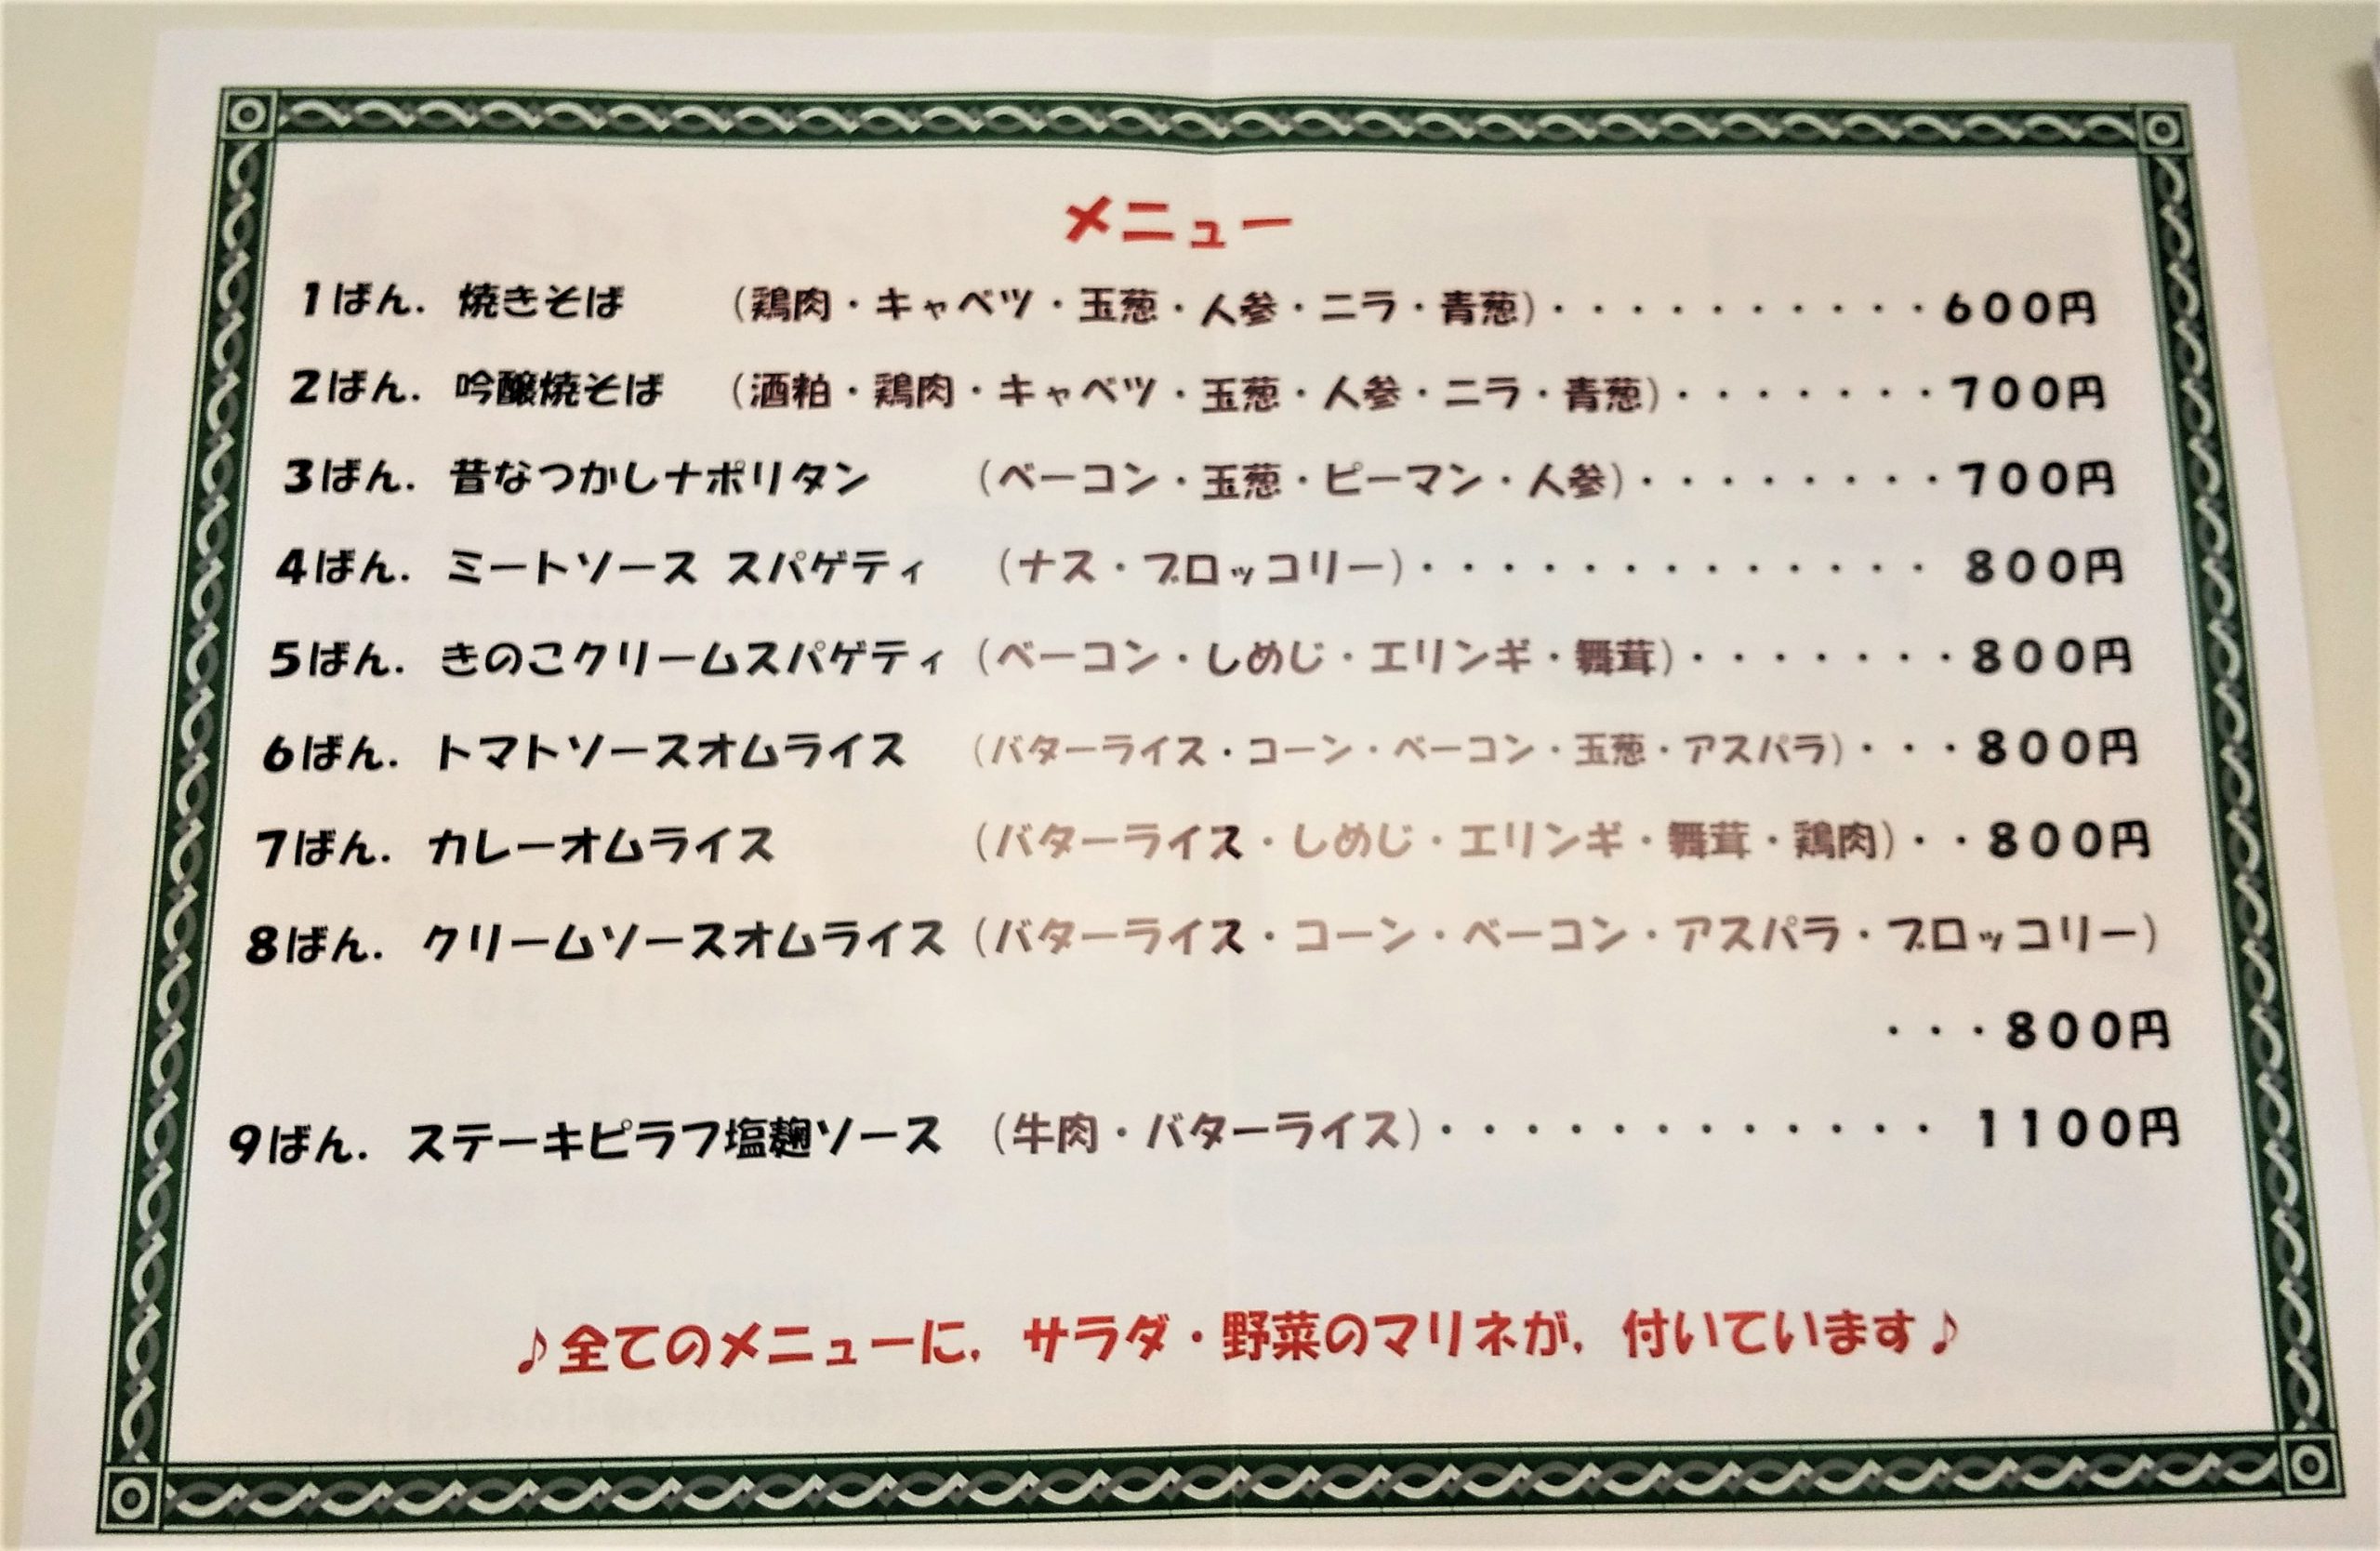 メニュー
1ばん. 焼きそば (鶏肉・キャベツ・玉葱・人参・ニラ・青葱)・・・・・・・・・・600円
2ばん. 吟醸焼そば (酒粕・鶏肉・キャベツ・玉葱・人参・ニラ・青葱)・・・・・・・700円
3ばん. 昔なつかしナポリタン (ベーコン・玉葱・ピーマン・人参)・・・・・・・・700円
4ばん. ミートソース スパゲティ (ナス・ブロッコリー)・・・・・・・・・・・・・ 800円
5ばん. きのこクリームスパゲティ (ベーコン・しめじ・エリンギ・舞茸)・・・・・・・800円
6ばん. トマトソースオムライス (バターライス・コーン・ベーコン・玉葱・アスパラ)・・・800円
7ばん. カレーオムライス (バターライス・しめじ・エリンギ・舞茸・鶏肉)・・800円
8ばん. クリームソースオムライス (バターライス・コーン・ベーコン・アスパラ・ブロッコリー)
・・・800円
9ばん. ステーキピラフ塩麹ソース (牛肉・バターライス)・・・・・・・・・・・・・ 1100円
♪全てのメニューに, サラダ・野菜のマリネが, 付いています♪